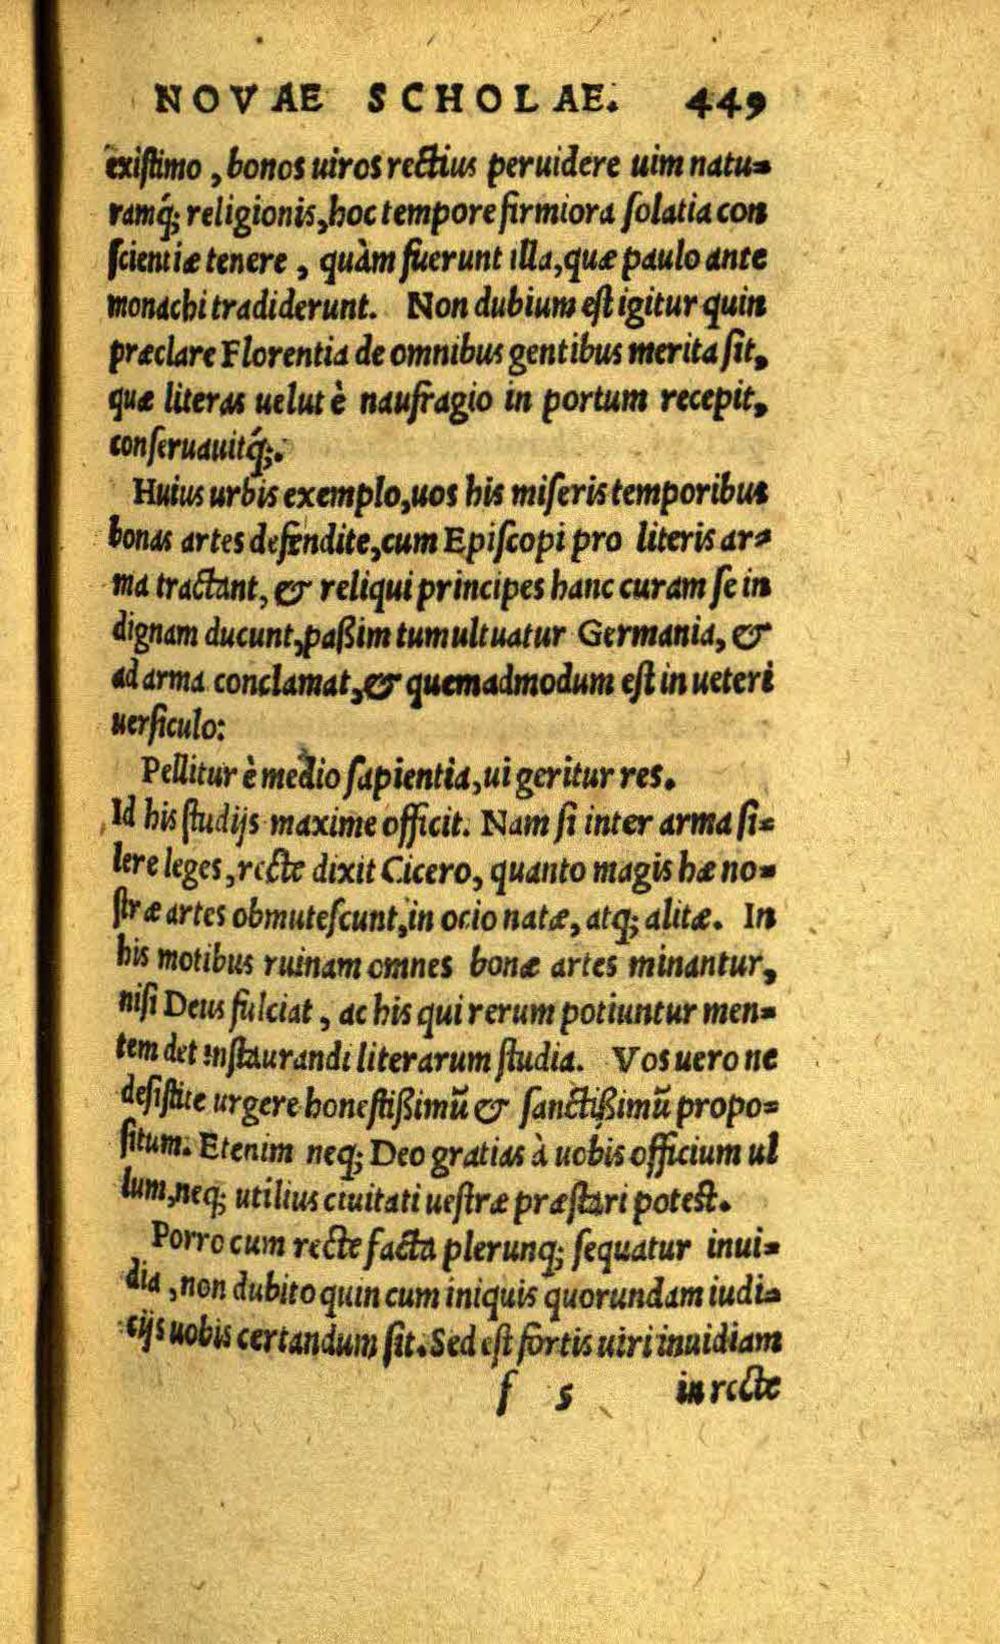 NOVAE SCHOLAE. 449
existimo, bonos uiros rectius peruidere uim natu=
ramq́; religionis, hoc tempore firmiora solatia con
scientiæ tenere, quàm fuerunt illa, quæ paulo ante
monachi tradiderunt. Non dubium est igitur quin
præclare Florentia de omnibus gentibus merita sit,
quæ literas uelut è naufragio in portum recepit,
conseruauitq́;.
Huius urbis exemplo, uos his miseris temporibus
bonas artes defendite, cum Episcopi pro literis ar=
ma tractant, & reliqui principes hanc curam se in
dignam ducunt, paßim tumultuatur Germania, &
ad arma conclamat, & quemadmodum est in ueteri
uersiculo:
Pellitur è medio sapientia, ui geritur res.
Id his studijs maxime officit. Nam si inter arma si=
lere leges, recte dixit Cicero, quanto magis hæ no=
stræ artes obmutescunt, in ocio natæ, atq; alitæ. In
his motibus ruinam omnes bonæ artes minantur,
nisi Deus fulciat, ac his qui rerum potiuntur men=
tem det instaurandi literarum studia. Vos uero ne
desistite urgere honestißimū & sanctißimū propo=
situm. Etenim neq; Deo gratias à uobis officium ul
lum, neq; utilius ciuitati uestræ præstari potest.
Porro cum recte facta plerunq; sequatur inui=
dia, non dubito quin cum iniquis quorundam iudi=
cijs uobis certandum sit. Sed est fortis uiri inuidiam
f s in recte